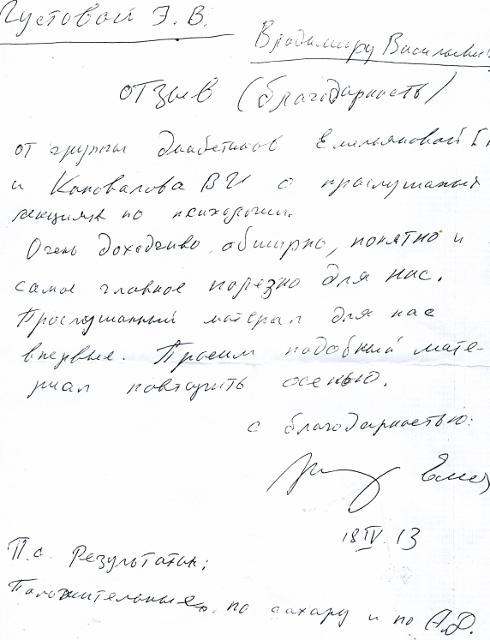 Пустовой Э. В.
Владимиру Васильевич
отзыв (благодарность)
от группы диабетиков Емельяновой Г.
и Коновалова ВИ о прослушаных
лекциях по психологии.
Очень доходчиво, обширно, понятно и
самое главное полезно для нас.
Прослушанный матерал для нас
впервые. Просим подобный мате-
риал повторить осенью.
с благодарностью:
18 IV. 13
П.с. Результатах:
Положительные по сахару и по А.Д.